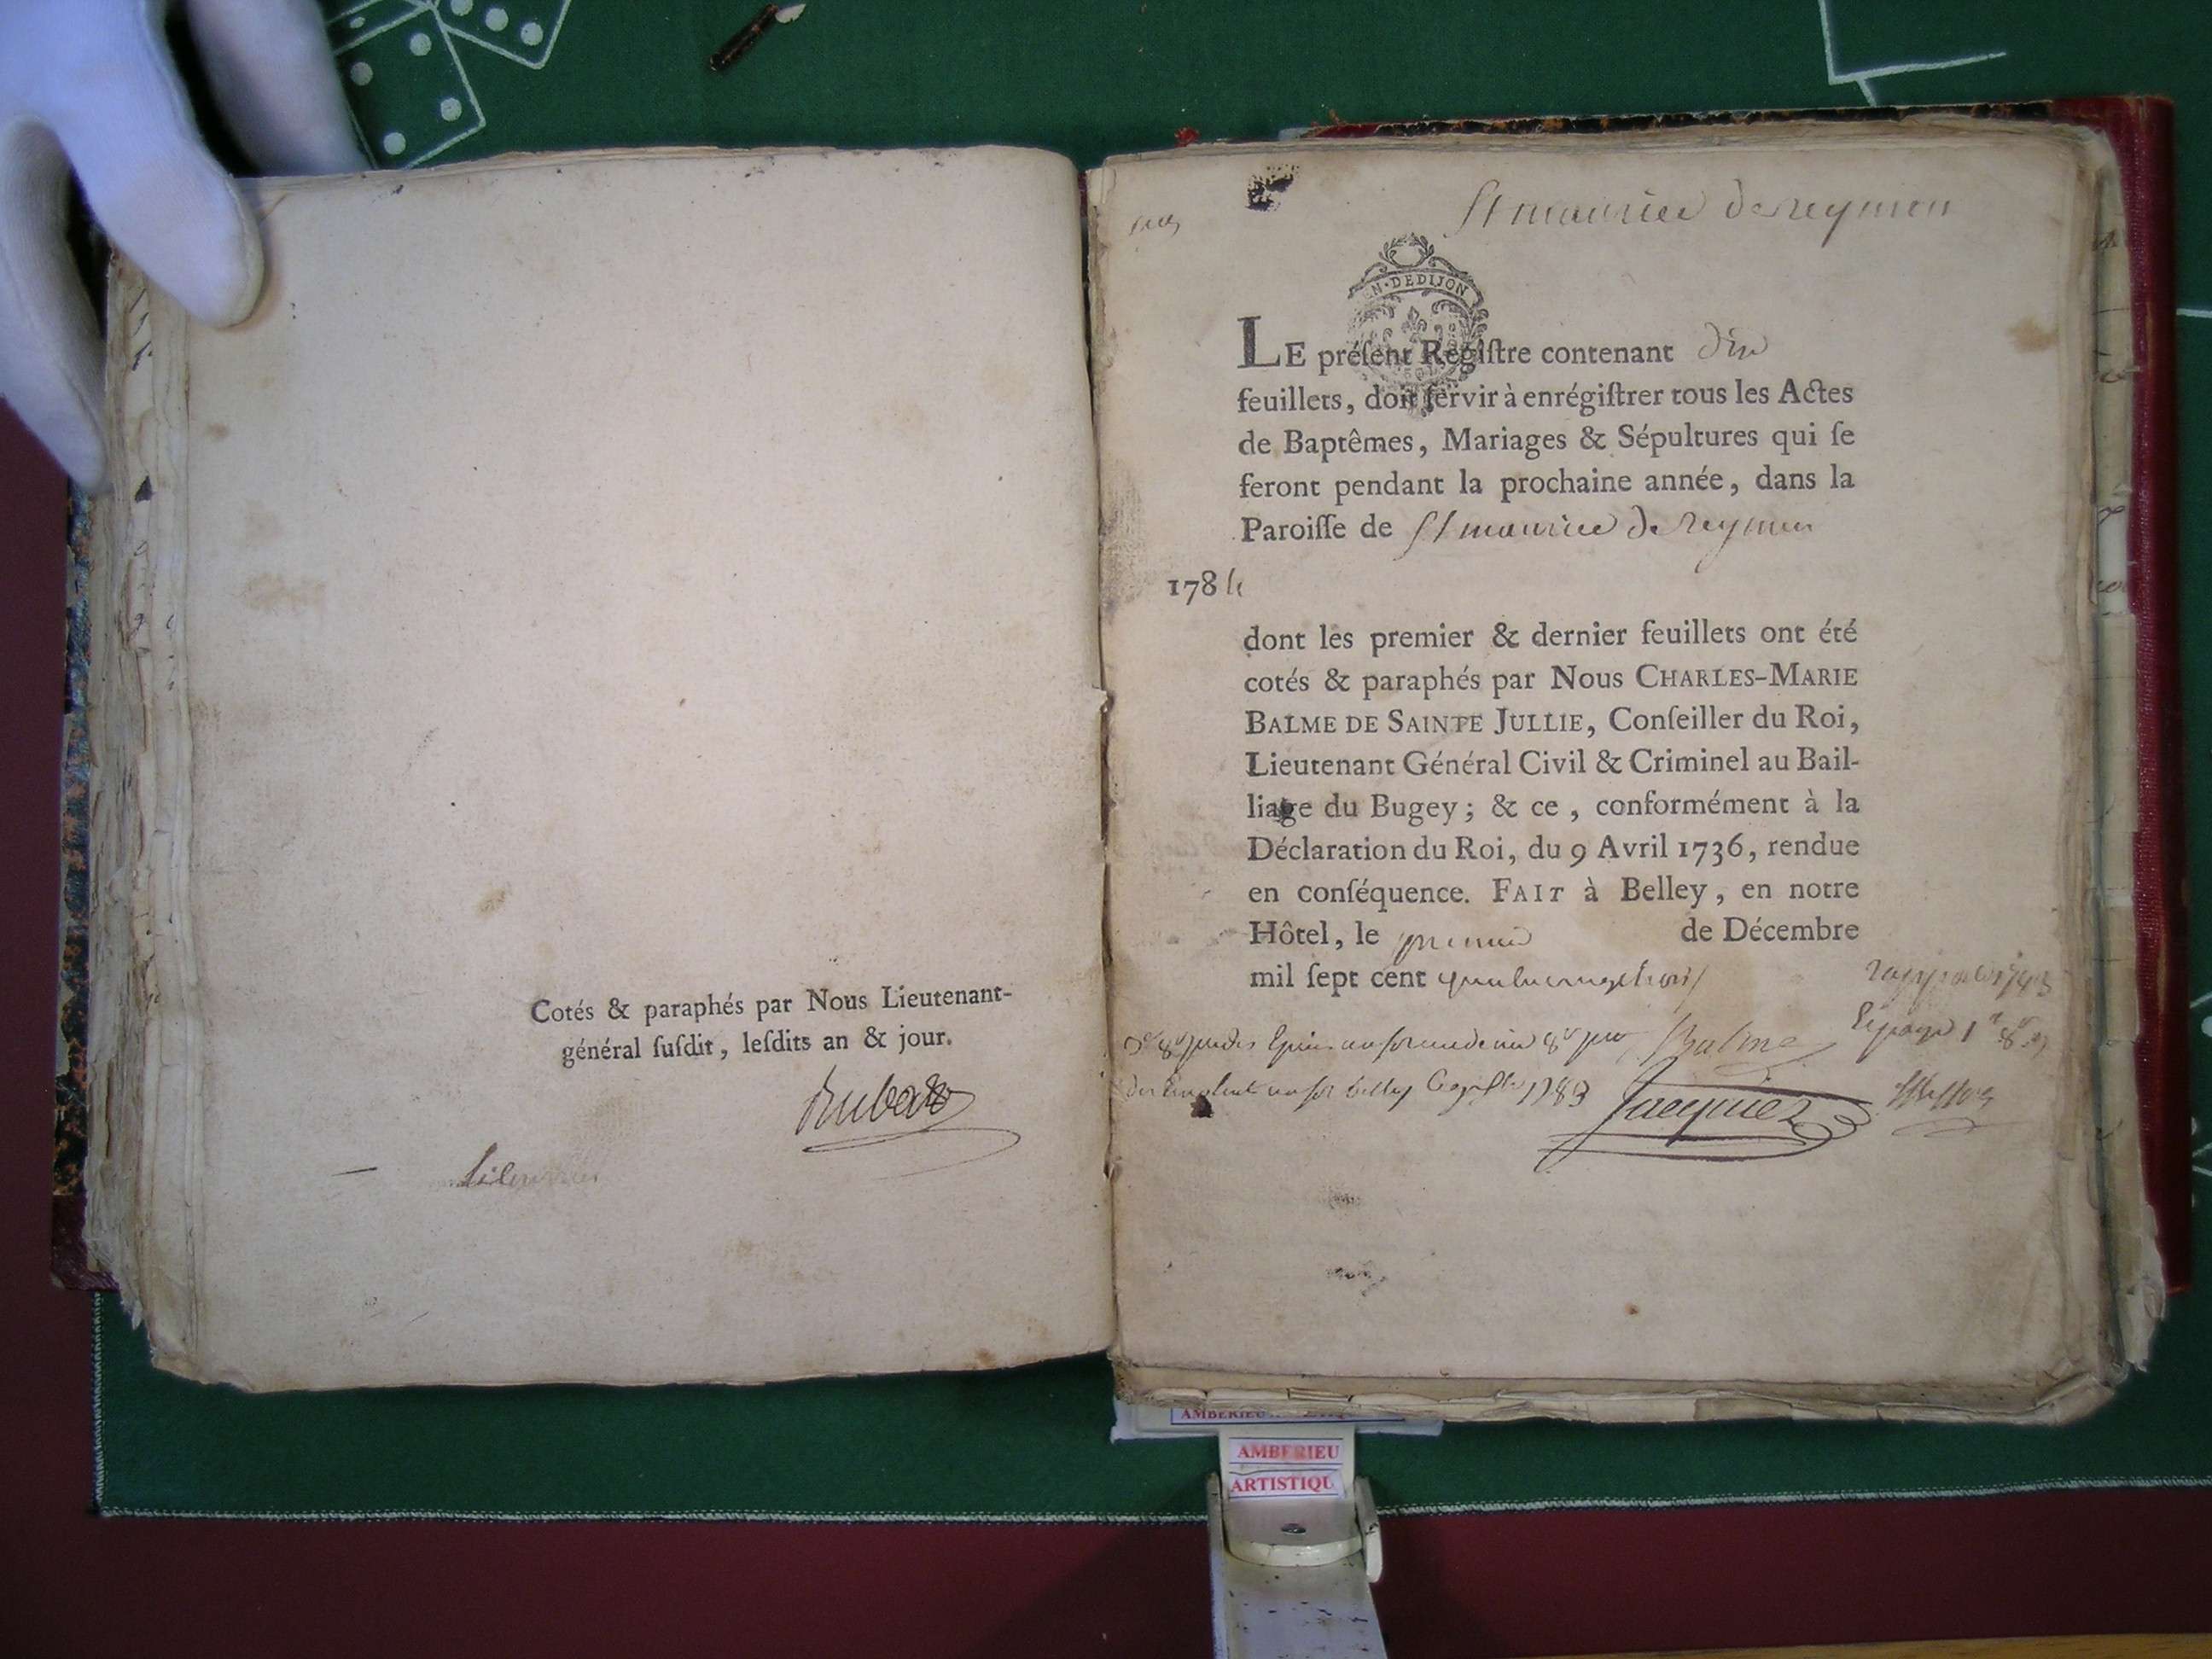 Cotés & paraphés par Nous Lieutenant-
général ſuſdit, leſdits an & jour.
St maurice de reymen
N·DEDIJON
LE préſent Regiſtre contenant dix
feuillets, doit ſervir à enrégiſtrer tous les Actes
de Baptêmes, Mariages & Sépultures qui ſe
feront pendant la prochaine année, dans la
Paroiſſe de St maurice de reymen
1784
dont les premier & dernier feuillets ont été
cotés & paraphés par Nous CHARLES-MARIE
BALME DE SAINTE JULLIE, Conſeiller du Roi,
Lieutenant Général Civil & Criminel au Bail-
liage du Bugey; & ce, conformément à la
Déclaration du Roi, du 9 Avril 1736, rendue
en conſéquence. FAIT à Belley, en notre
Hôtel, le premier de Décembre
mil ſept cent quatrevingt trois
Balme
belley 1783 Jacquier
AMBERIEU
AMBERIEU
ARTISTIQU